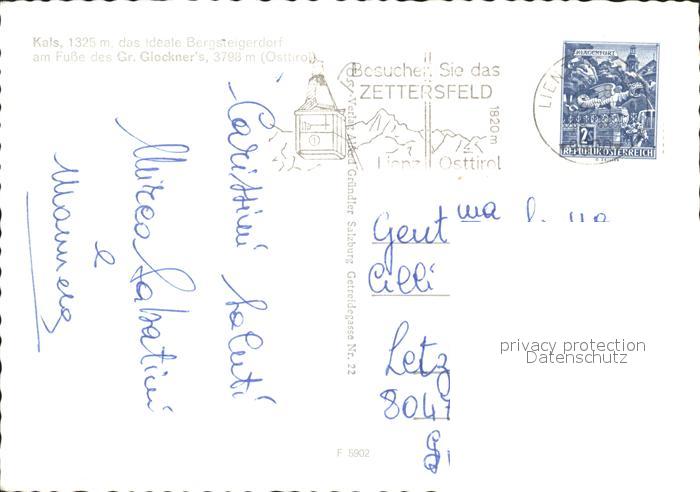 Kals, 1325 m, das ideale Bergsteigerdorf
am Fuße des Gr. Glockner's, 3798 m (Osttirol)
Besuchen Sie das
ZETTERSFELD
1820m
Lienz Osttirol
LIENZ
KLAGENFURT
2S
REPUBLIK ÖSTERREICH
Verlag Alfred Gründler Salzburg Getreidegasse Nr. 22
Carissimi saluti
Mirco Sabatini
e
Manuela
Gent ma
Cilli
Letz
8047
privacy protection
Datenschutz
F 5902